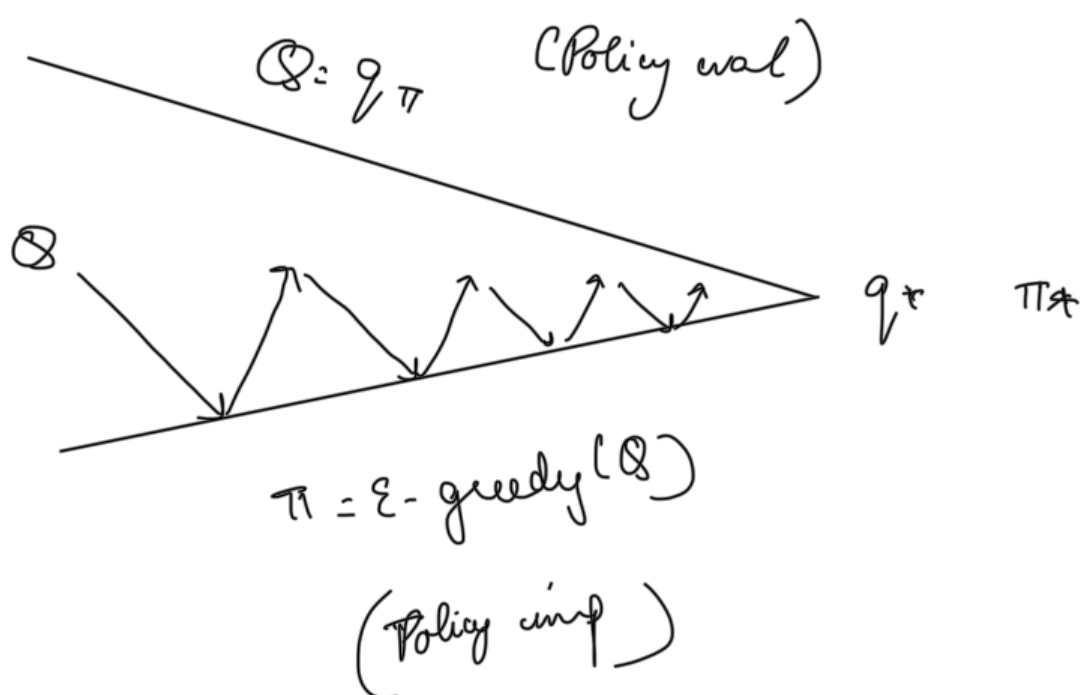 Q = q π (Policy eval)
Q
q* π*
π = ε-greedy(Q)
(Policy imp)